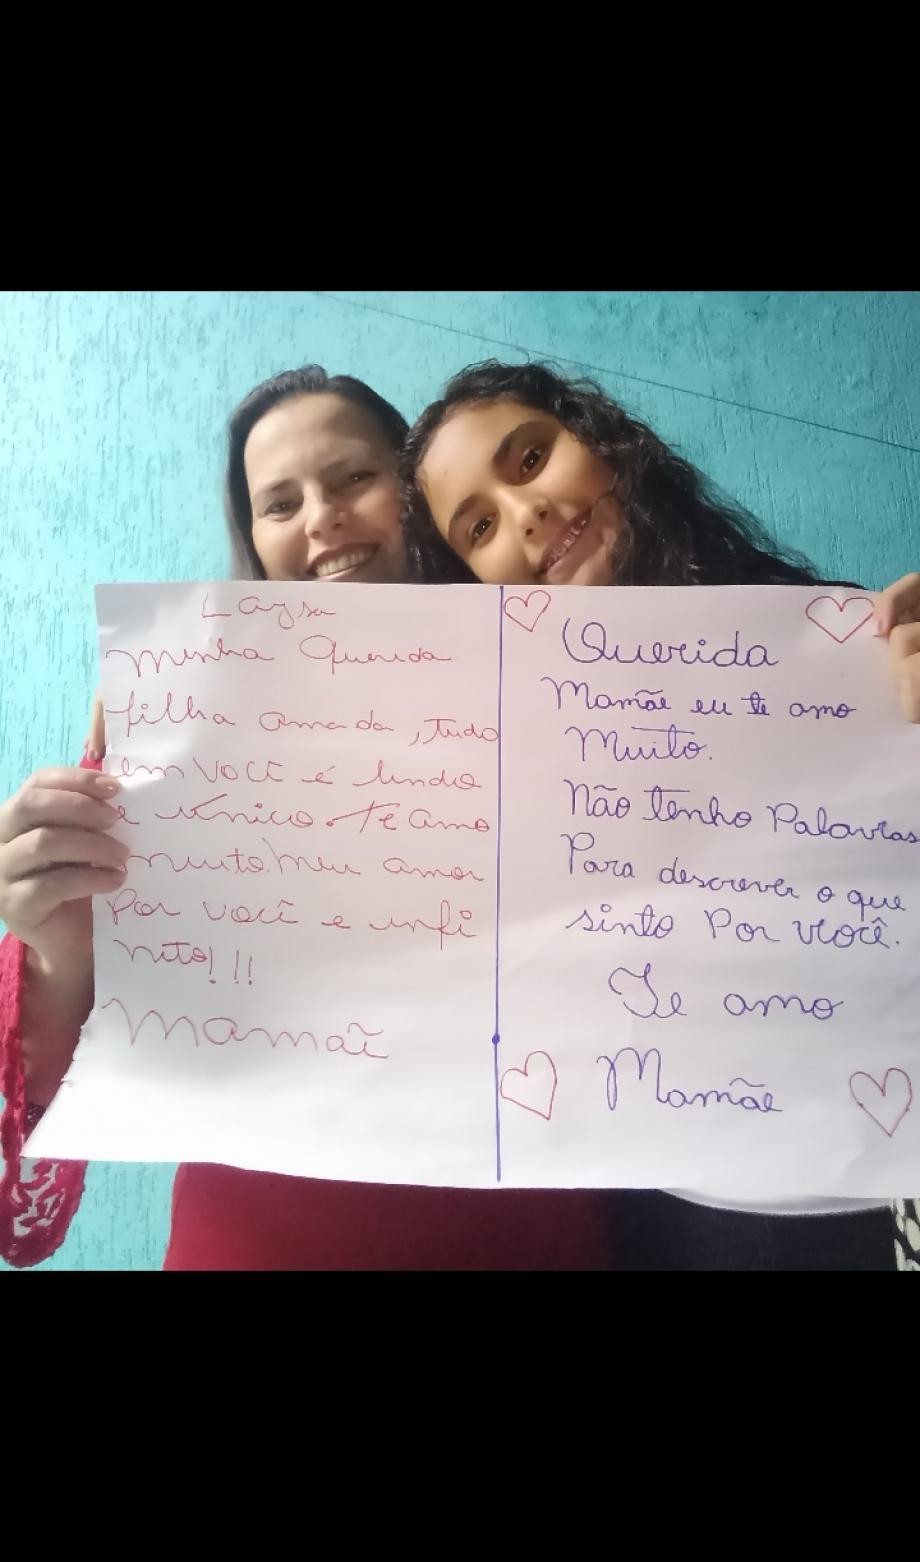 Laysa
Minha Querida
filha amada, tudo
em você é lindo
e único. Te amo
muito! meu amor
Por você e infi
nito!!!
Mamãe
Querida
Mamãe eu te amo
Muito.
Não tenho Palavras
Para descrever o que
sinto Por você.
Te amo
Mamãe